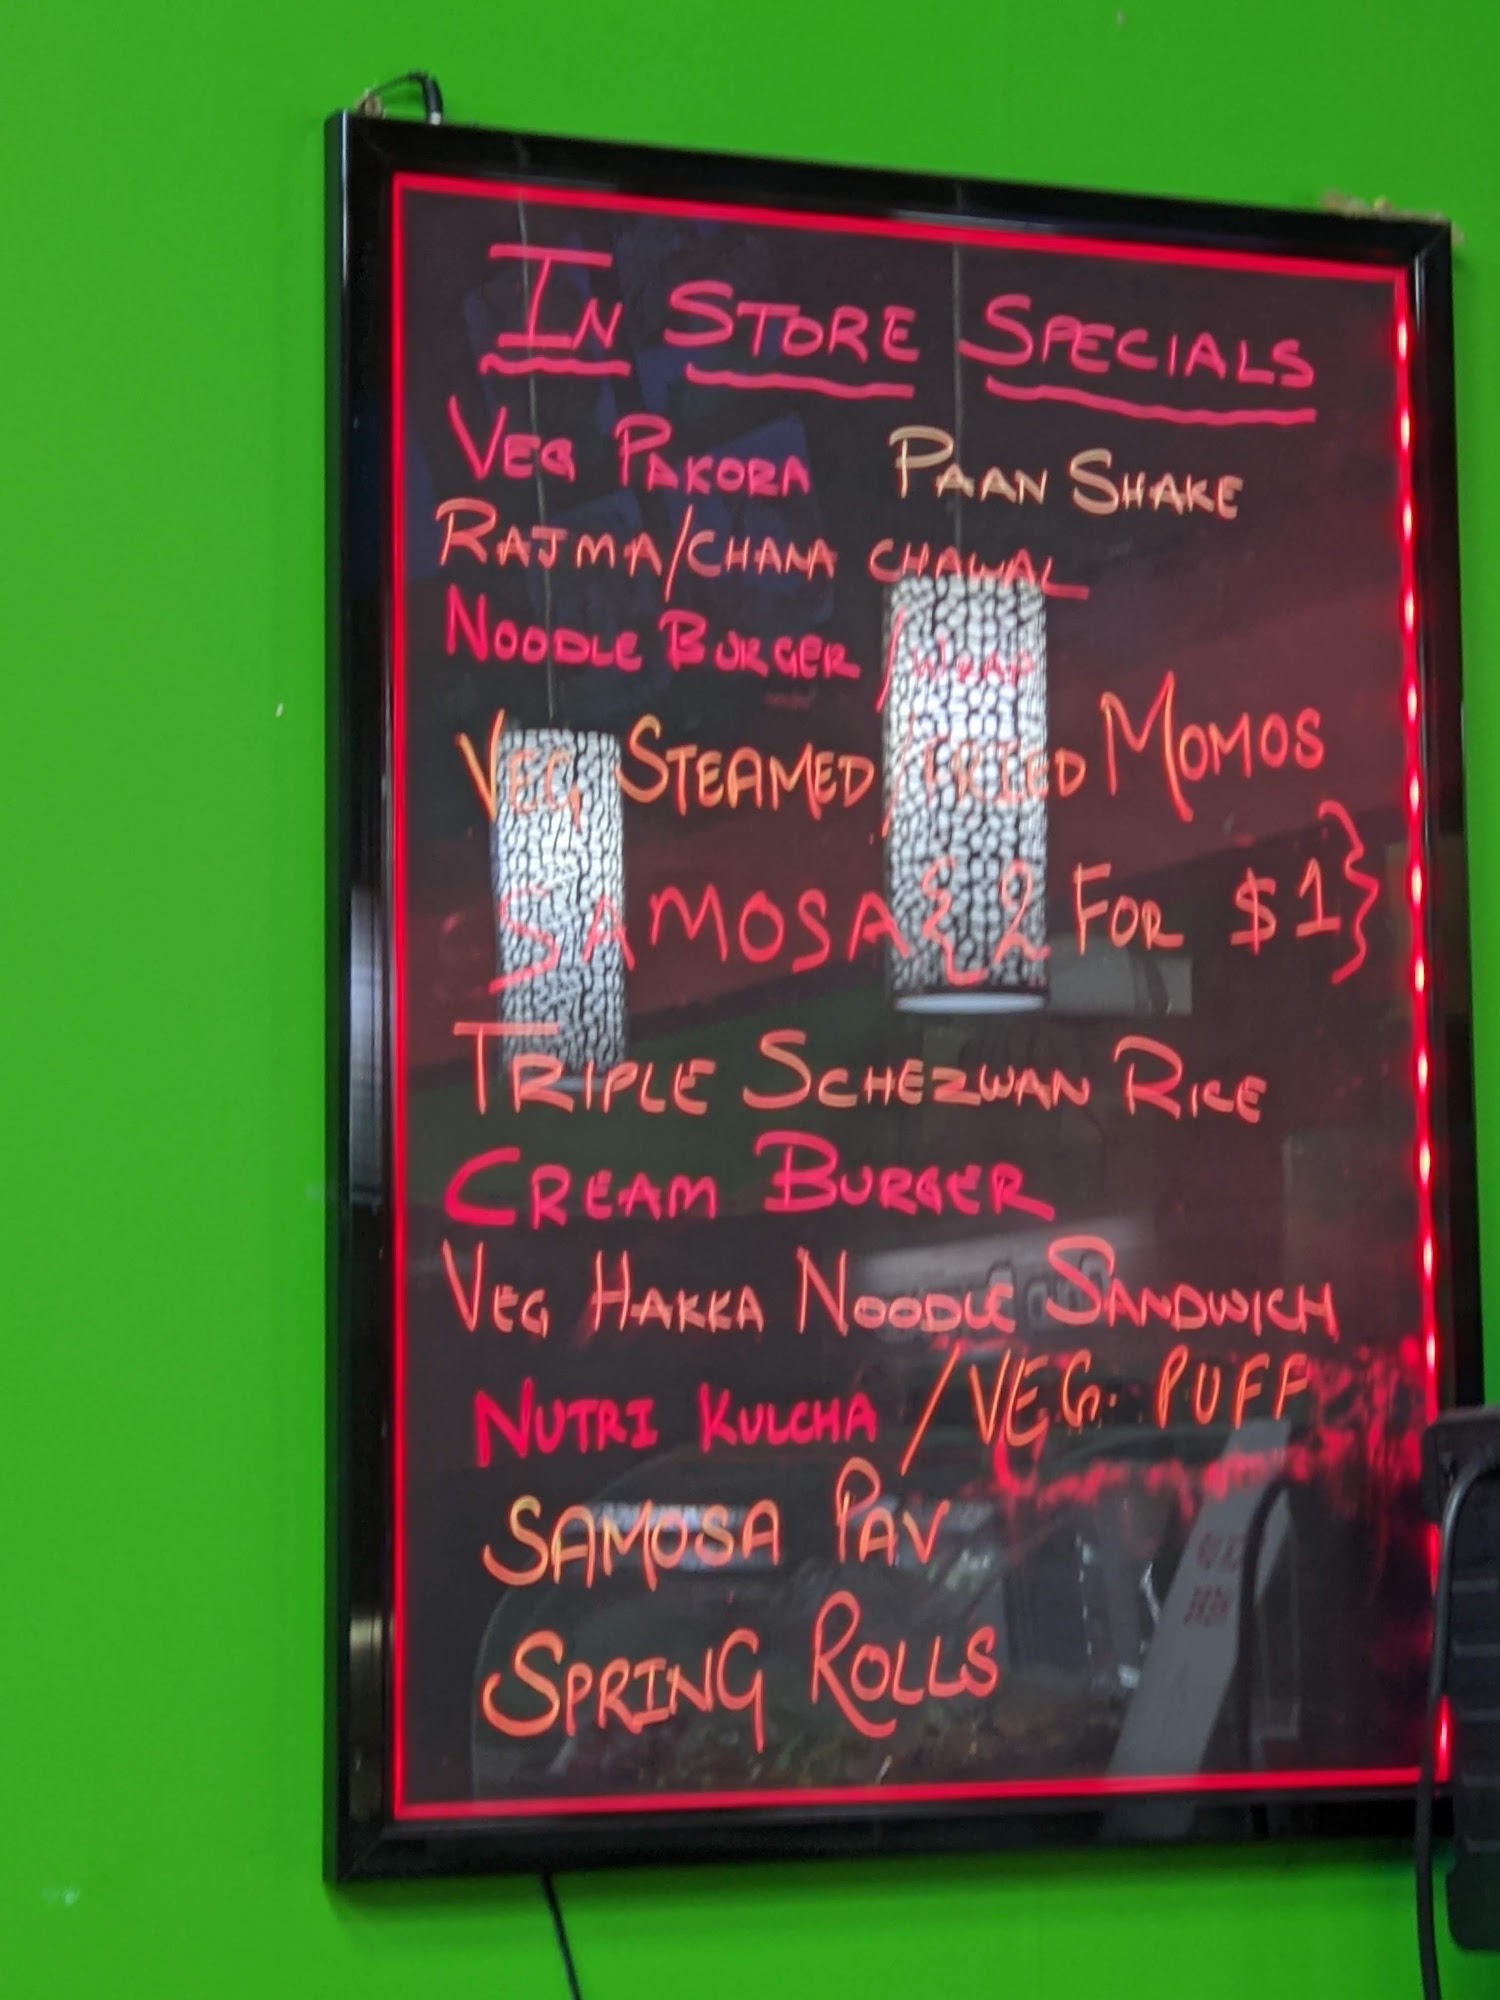 IN STORE SPECIALS
VEG PAKORA PAAN SHAKE
RAJMA/CHANA CHAWAL
NOODLE BURGER /WRAP
VEG STEAMED/FRIED MOMOS
SAMOSA { 2 FOR $1}
TRIPLE SCHEZWAN RICE
CREAM BURGER
VEG HAKKA NOODLE SANDWICH
NUTRI KULCHA /VEG. PUFF
SAMOSA PAV
SPRING ROLLS